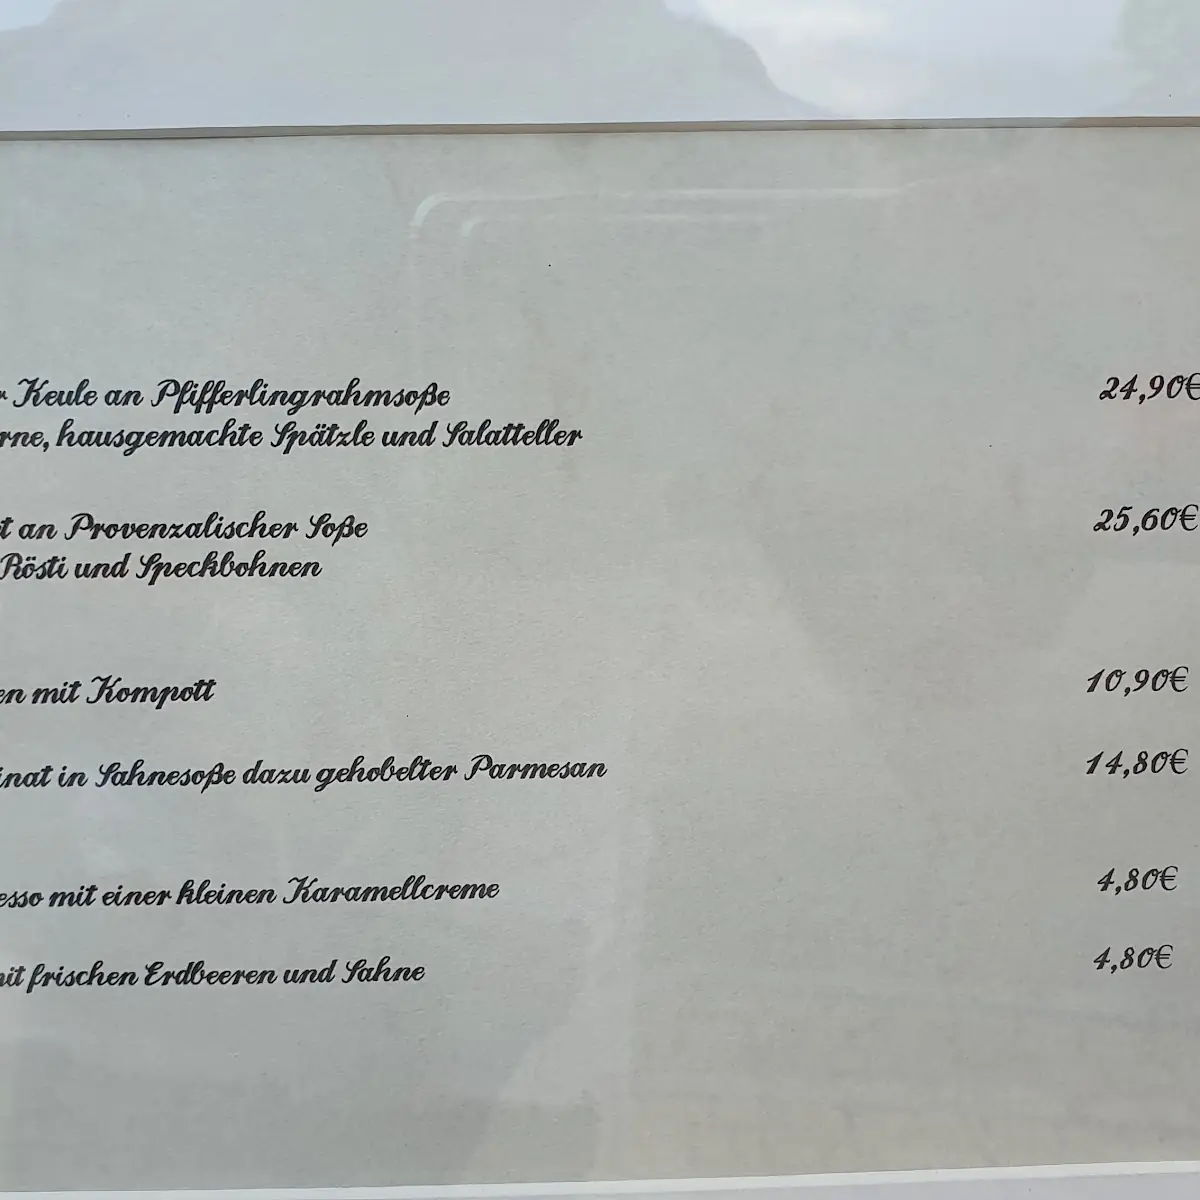 Keule an Pfifferlingrahmsoße 24,90€
hausgemachte Spätzle und Salatteller
an Provenzalischer Soße 25,60€
Rösti und Speckbohnen
mit Kompott 10,90€
in Sahnesoße dazu gehobelter Parmesan 14,80€
mit einer kleinen Karamellcreme 4,80€
frischen Erdbeeren und Sahne 4,80€